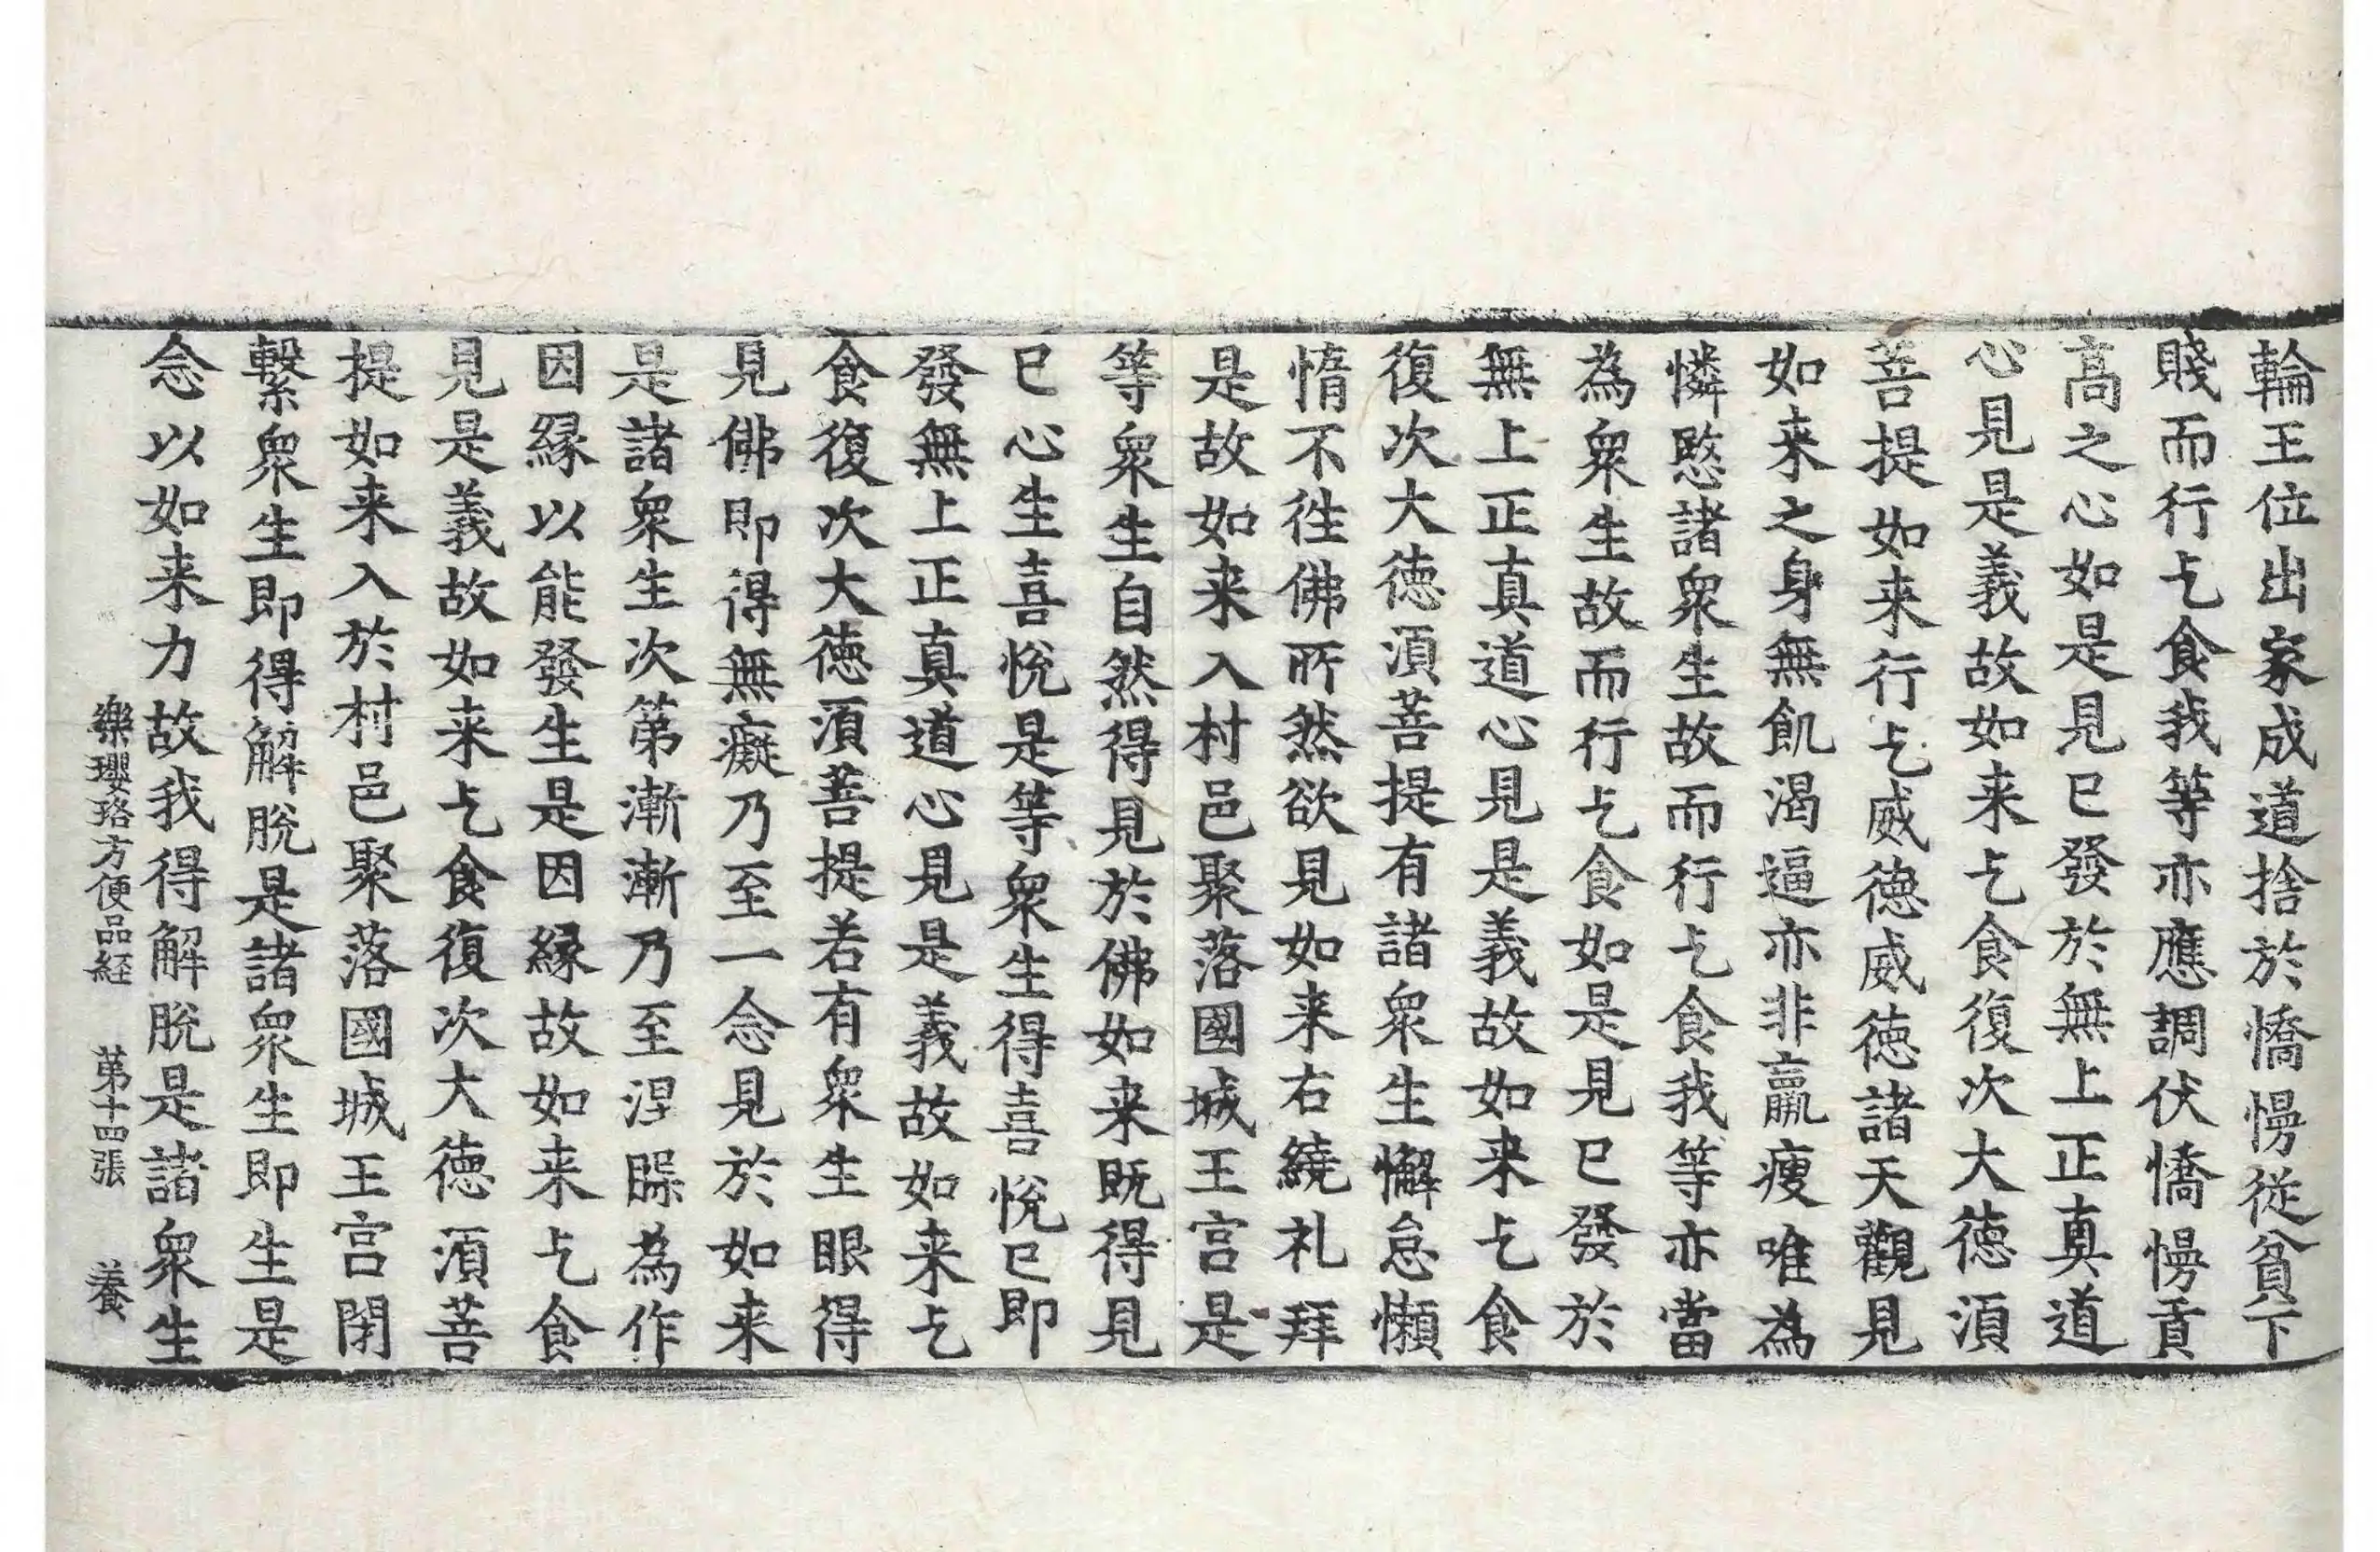 輪王位出家成道捨於憍慢従貧下
賤而行乞食我等亦應調伏憍慢貢
高之心如是見已發於無上正真道
心見是義故如来乞食復次大徳湏
菩提如来行乞威徳威徳諸天觀見
如来之身無飢渴逼亦非羸瘦唯為
憐愍諸衆生故而行乞食我等亦當
為衆生故而行乞食如是見已發於
無上正真道心見是義故如来乞食
復次大徳湏菩提有諸衆生懈怠懶
惰不徃佛所然欲見如来右繞礼拜
是故如来入村邑聚落國城王宫是
等衆生自然得見於佛如来既得見
已心生喜悅是等衆生得喜悅已即
發無上正真道心見是義故如来乞
食復次大徳湏菩提若有衆生眼得
見佛即得無癡乃至一念見於如来
是諸衆生次第漸漸乃至涅槃為作
因縁以能發生是因縁故如来乞食
見是義故如来乞食復次大徳湏菩
提如来入於村邑聚落國城王宫閉
繫衆生即得解脫是諸衆生即生是
念以如来力故我得解脫是諸衆生
樂瓔珞方便品経　第十四張　養